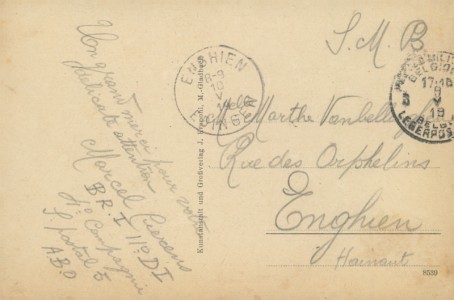 Un grand merci pour votre
délicate attention
Marcel
B.R.I 11e D I
4e Compagnie
S postal 5
A.B.O
Kunstanstalt und Großverlag J. M.-Gladbach
ENGHIEN
8-9
10
V
19
EDINGEN
S.M.B
BELGIQUE
17-18
9
V
19
BELG
LEGERPOST
Melle Marthe Vanbelle
Rue des Orphelins
Enghien
Hainaut
8539